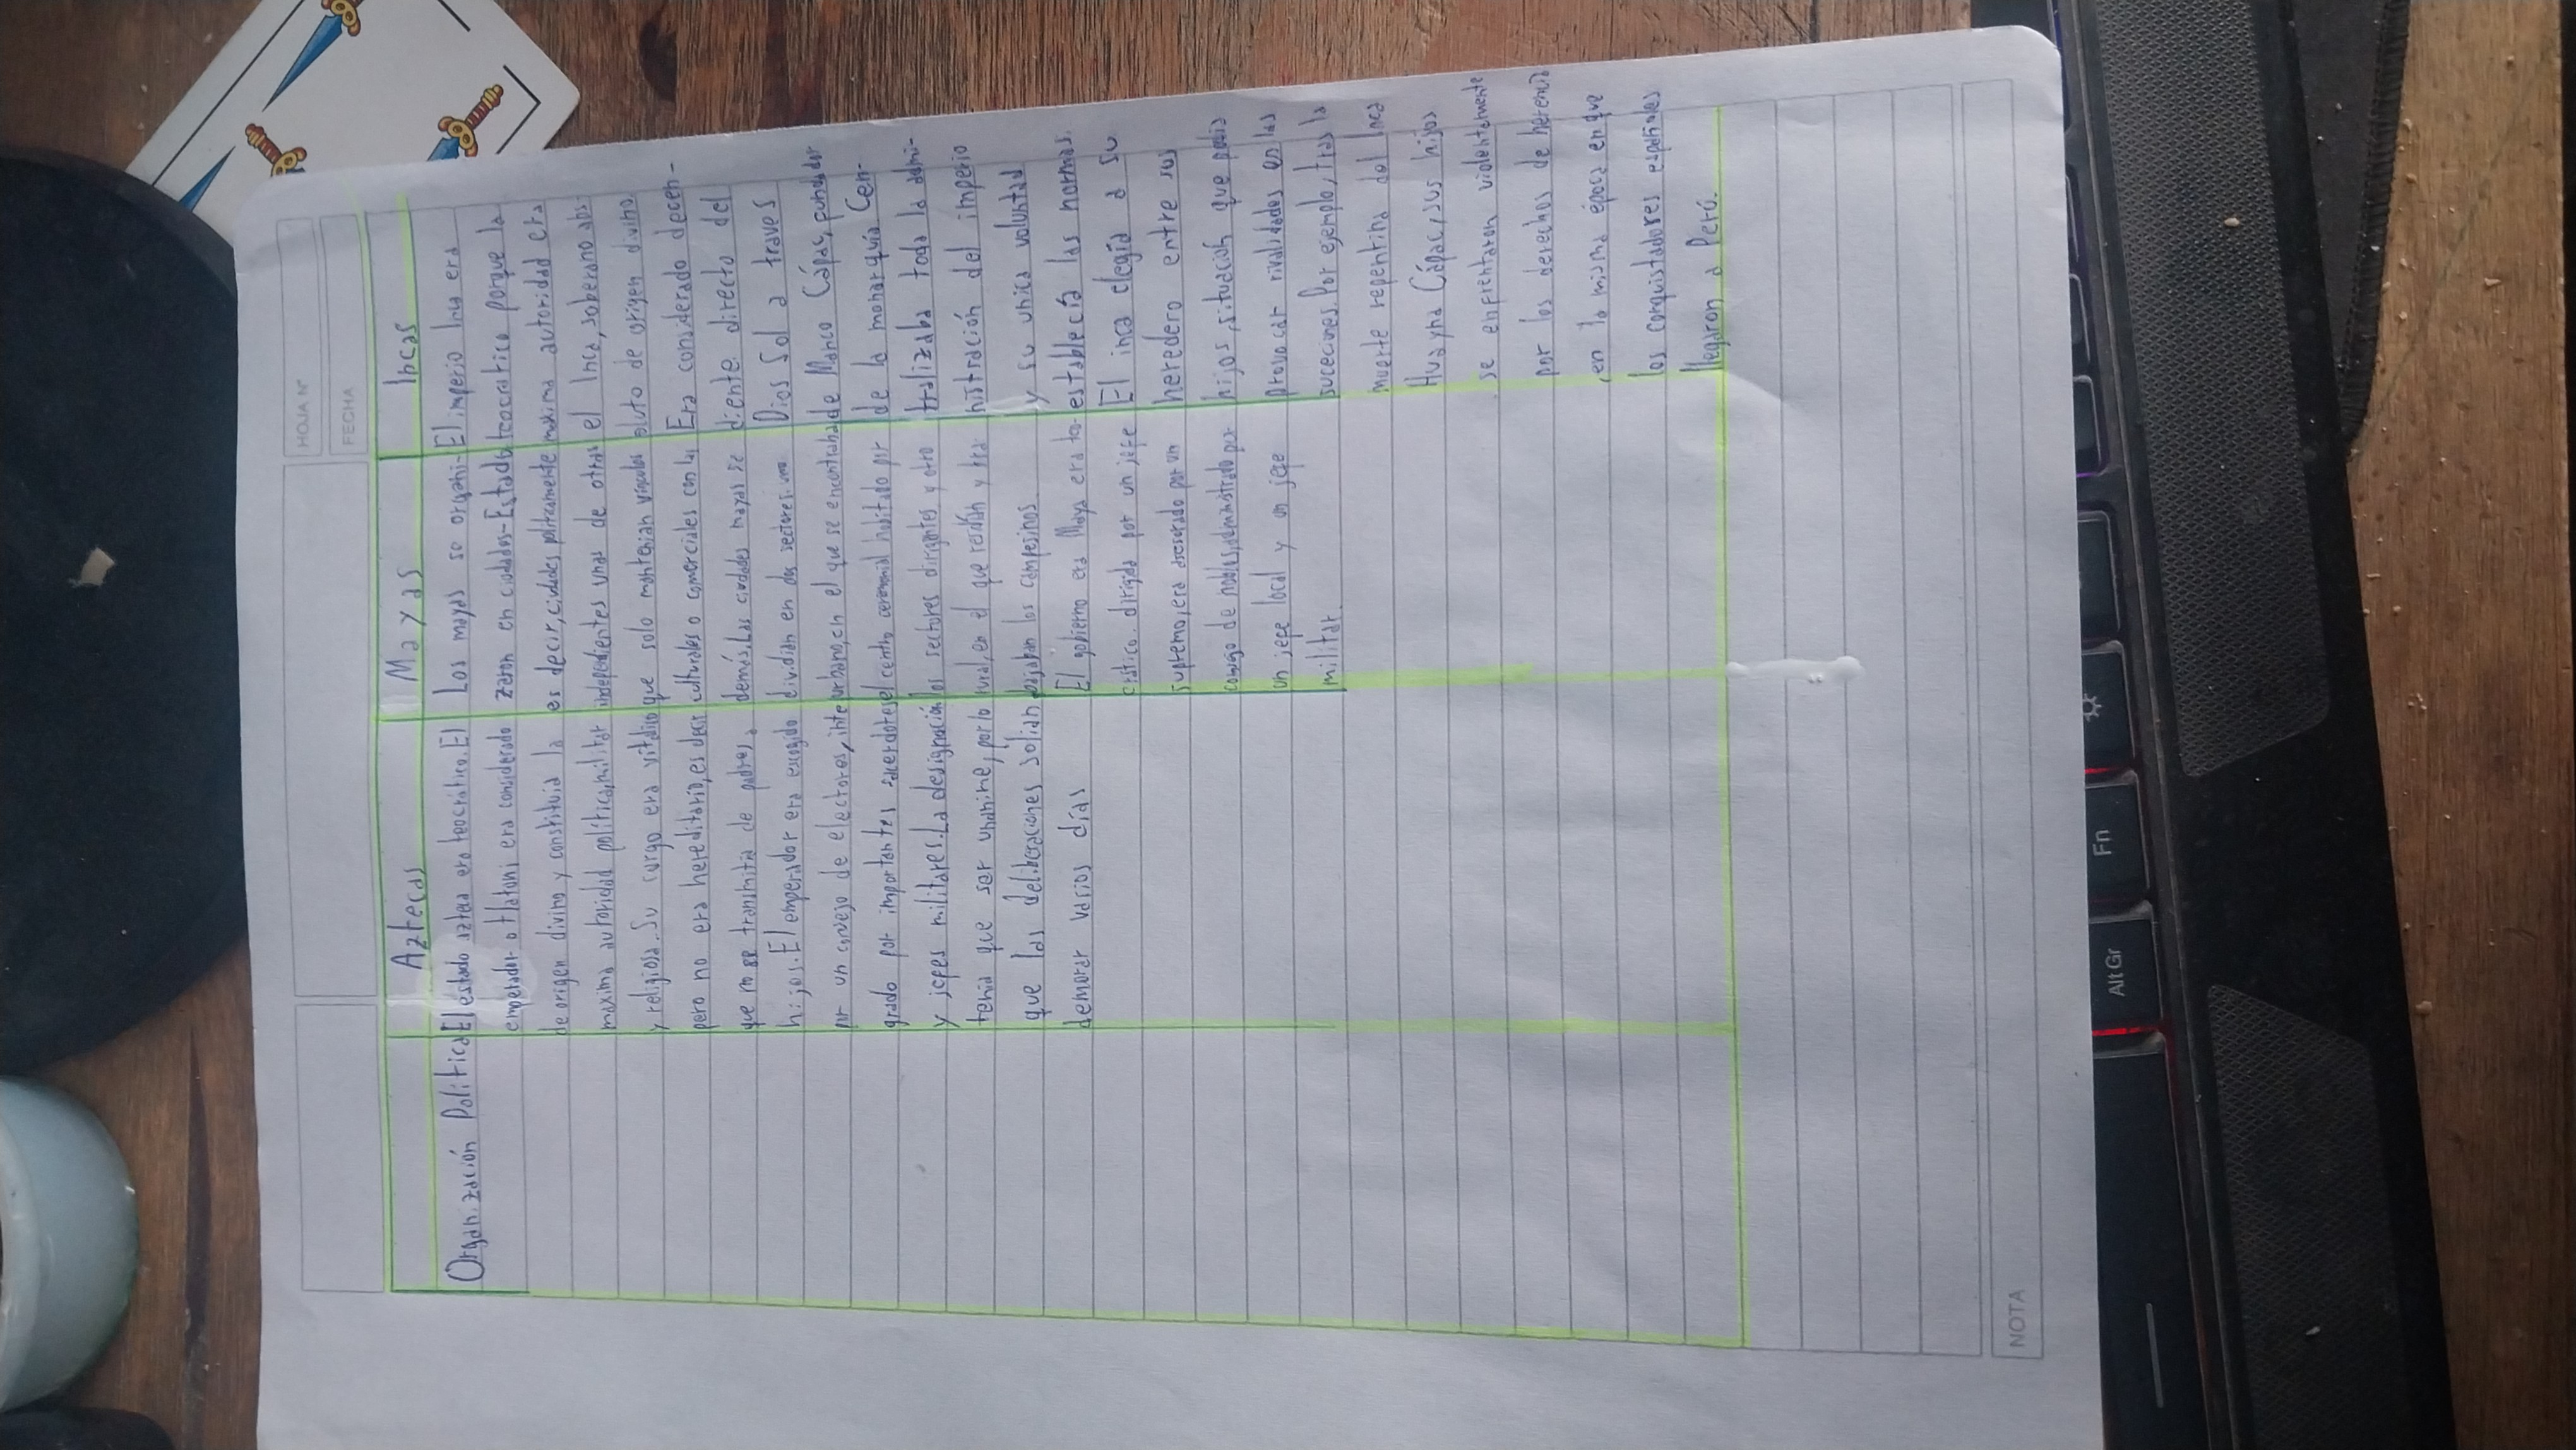 HOJA Nº
FECHA
Aztecas
Mayas
Incas
Organización Politica
El estado azteca era teocrático. El
emperador o tlatoni era considerado
de origen divino y constituia la
maxima autoridad política, militar
y religiosa. Su cargo era vitalicio
pero no era hereditario, es decir
que no se transmitia de padres a
hijos. El emperador era escogido
por un consejo de electores, inte
grado por importantes sacerdotes
y jefes militares. La designación
tenia que ser unanime, por lo
que las deliberaciones solian
demorar varios días
Los mayas se organi-
zaron en ciudades-Estado
es decir, ciudades políticamente
independientes unas de otras
que solo mantenian vinculos
culturales o comerciales con las
demás. Las ciudades mayas se
dividian en dos sectores: uno
urbano, en el que se encontraba
el centro ceremonial habitado por
los sectores dirigentes y otro
rural, en el que residían y tra
bajaban los campesinos.
El gobierno era Maya era teo-
cratico. dirigida por un jefe
supremo, era asesorado por un
consejo de nobles, administrado por
un jefe local y un jefe
militar.
El imperio Inca era
teocratico porque la
maxima autoridad era
el Inca, soberano abs
oluto de origen divino.
Era considerado decen-
diente directo del
Dios Sol a traves
de Manco Cápac, fundador
de la monarquía Cen-
tralizaba toda la admi-
nistración del imperio
y su unica voluntad
establecía las normas.
El inca elegía a su
heredero entre sus
hijos, situación que podia
provocar rivalidades en las
suceciones. Por ejemplo, tras la
muerte repentina del Inca
Huayna Cápac, sus hijos
se enfrentaron violentamente
por los derechos de herencia
, en la misma época en que
los conquistadores españoles
llegaron a Perú.
NOTA
Fn
Alt Gr